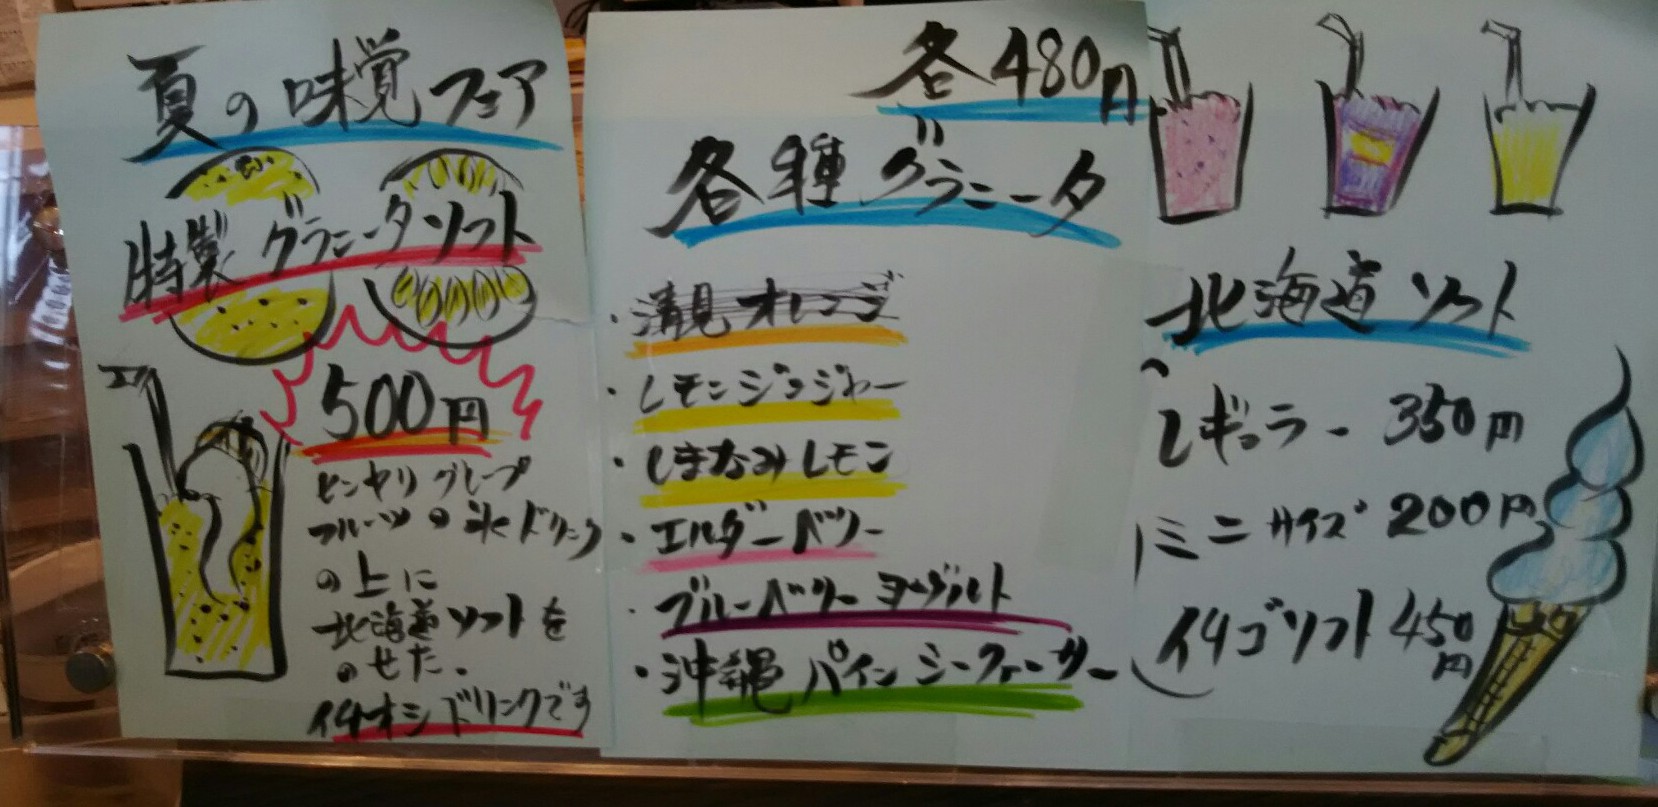 夏の味覚フェア
特製 グラニータソフト
500円
ヒンヤリグレープ
フルーツの氷ドリンク
の上に
北海道ソフトを
のせた。
イチオシドリンクです
各480円
各種 グラニータ
・清見オレンジ
・レモンジンジャー
・しまなみレモン
・エルダーベリー
・ブルーベリーヨーグルト
・沖縄パインシークァーサー
北海道ソフト
レギュラー 350円
ミニサイズ 200円
イチゴソフト 450円